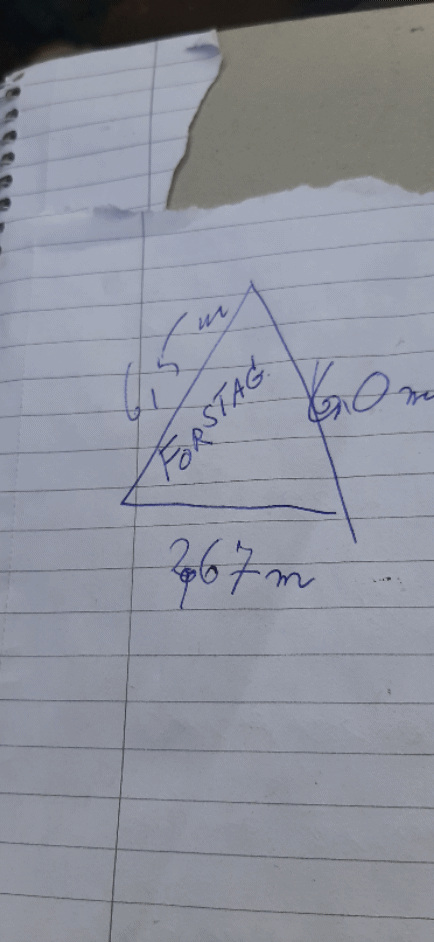 6,5 m
FORSTAG
6,0 m
2,67 m